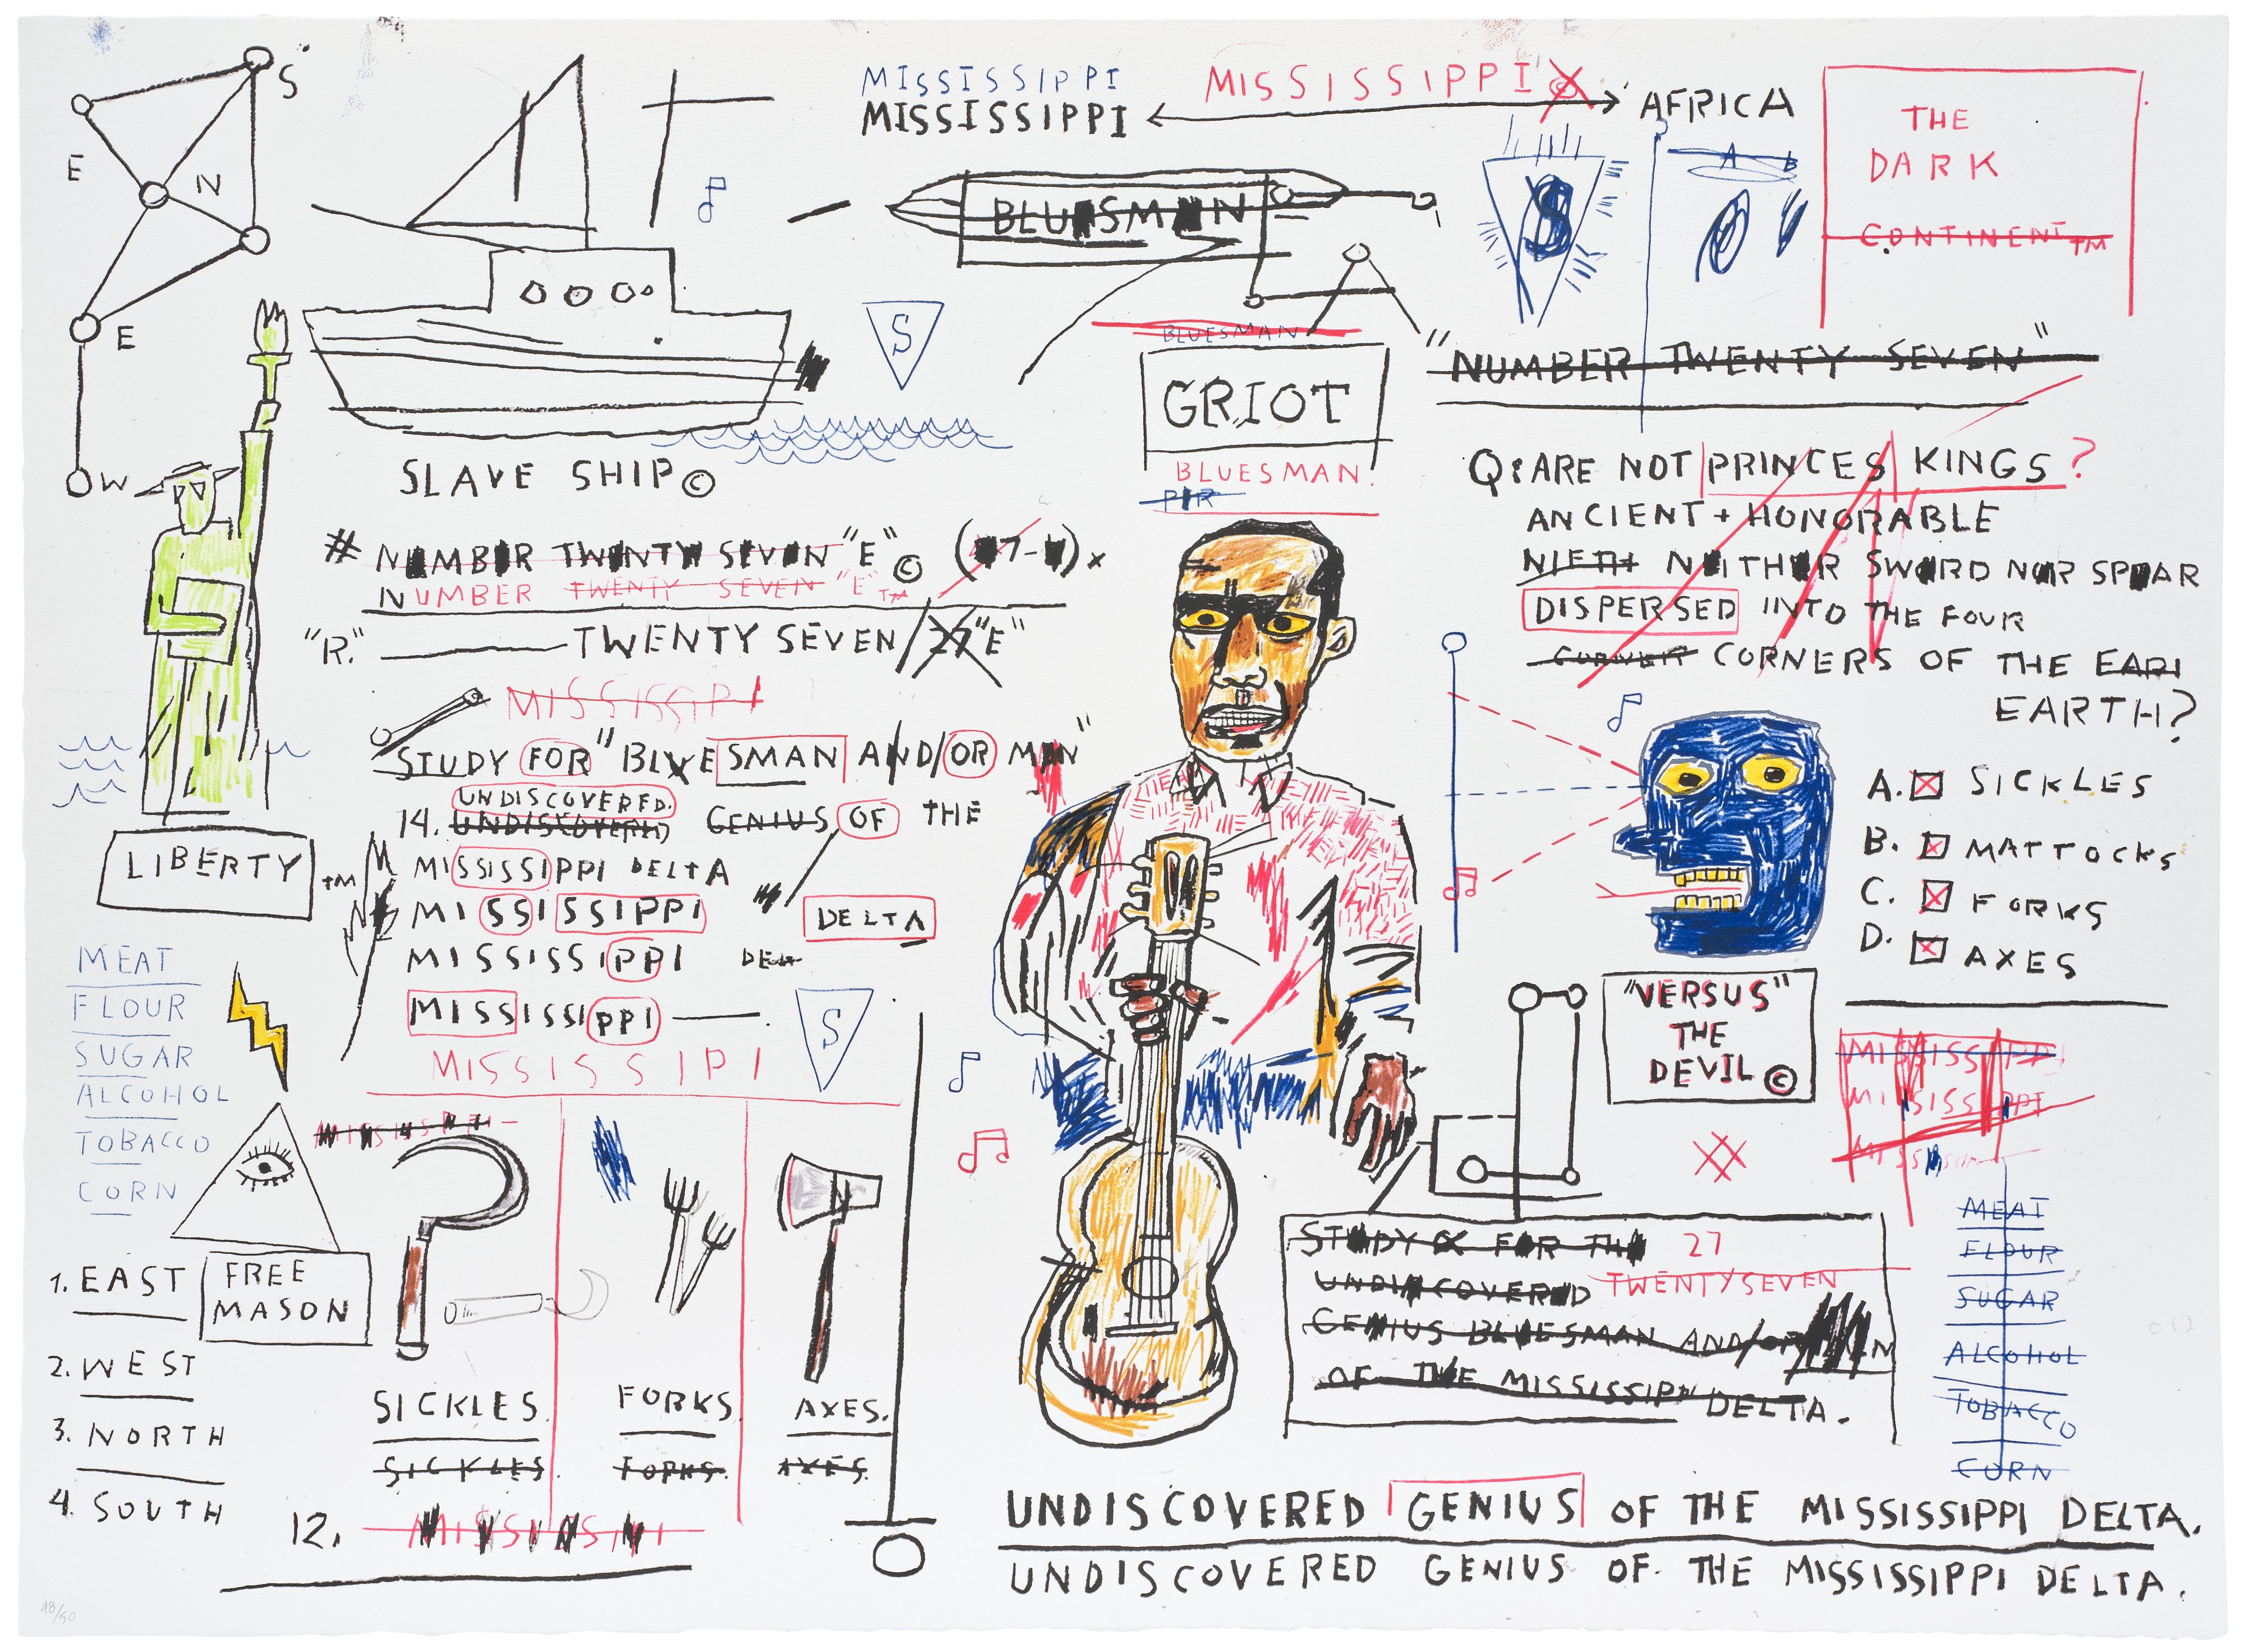 S
E
N
E
W
MISSISSIPPI
MISSISSIPPI
MISSISSIPPI
AFRICA
THE
DARK
CONTINENT TM
$
A B
BLUESMAN
S
BLUESMAN
GRIOT
BLUESMAN.
"NUMBER TWENTY SEVEN"
SLAVE SHIP ©
# NUMBER TWENTY SEVEN "E" ©
NUMBER TWENTY SEVEN "E" TM
"R." TWENTY SEVEN/27 "E"
MISSISSIPI
STUDY FOR "BLUESMAN AND/OR MAN"
UNDISCOVERED.
14. UNDISCOVERED GENIUS OF THE
MISSISSIPPI DELTA
MISSISSIPPI
DELTA
MISSISSIPPI
MISSISSIPPI
S
MISSISSIPI
LIBERTY TM
MEAT
FLOUR
SUGAR
ALCOHOL
TOBACCO
CORN
FREE
MASON
1. EAST
2. WEST
3. NORTH
4. SOUTH
SICKLES.
FORKS.
AXES.
SICKLES.
FORKS.
AXES.
12.
Q: ARE NOT PRINCES KINGS?
ANCIENT + HONORABLE
NIETH NEITHER SWORD NOR SPEAR
DISPERSED INTO THE FOUR
CORNERS OF THE EARI
EARTH?
A. SICKLES
B. MATTOCKS
C. FORKS
D. AXES
"VERSUS"
THE
DEVIL ©
MISSISSIPPI
MISSISSIPPI
MEAT
FLOUR
SUGAR
ALCOHOL
TOBACCO
CORN
STUDY FOR THE 27
UNDISCOVERED TWENTY SEVEN
GENIUS BLUESMAN AND/OR MAN
OF THE MISSISSIPPI DELTA.
UNDISCOVERED GENIUS OF THE MISSISSIPPI DELTA.
UNDISCOVERED GENIUS OF. THE MISSISSIPPI DELTA.
48/50